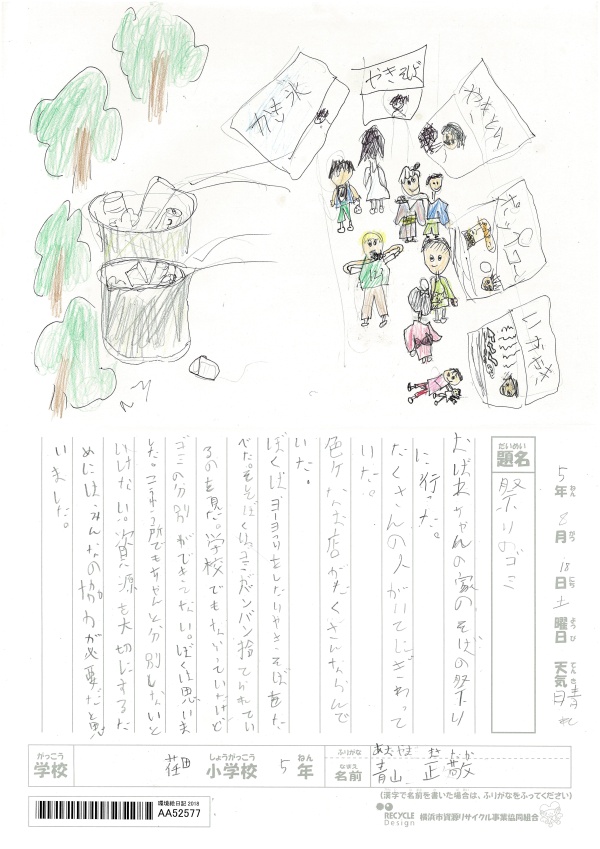 かき氷
やきそば
やきとり
チョコバナナ
いかやき
だいめい
題名
祭りのゴミ
5年8月18日土曜日 天気 晴れ
ねん がつ にち ようび てんき
おばあちゃんの家のそばの祭り
に行った。
たくさんの人がいてにぎわって
いた。
色々なお店がたくさんならんで
いた。
ぼくは、ヨーヨーつりをしたりやきそばをた
べた。そしてぼくは、ゴミがバンバン捨てられてい
るのを見た。学校でもならっていたけど
ゴミの分別ができてない。ぼくは思いま
した。こういう所でもちゃんと分別しないと
いけない。資源を大切にするた
めには、みんなの協力が必要だと思
いました。
がっこう
学校
荏田
しょうがっこう
小学校
5
ねん
年
ふりがな
あおやま
なまえ
名前
青山 正敬
(漢字で名前を書いた場合は、ふりがなをふってください)
環境絵日記 2018
AA52577
RECYCLE
Design
横浜市資源リサイクル事業協同組合